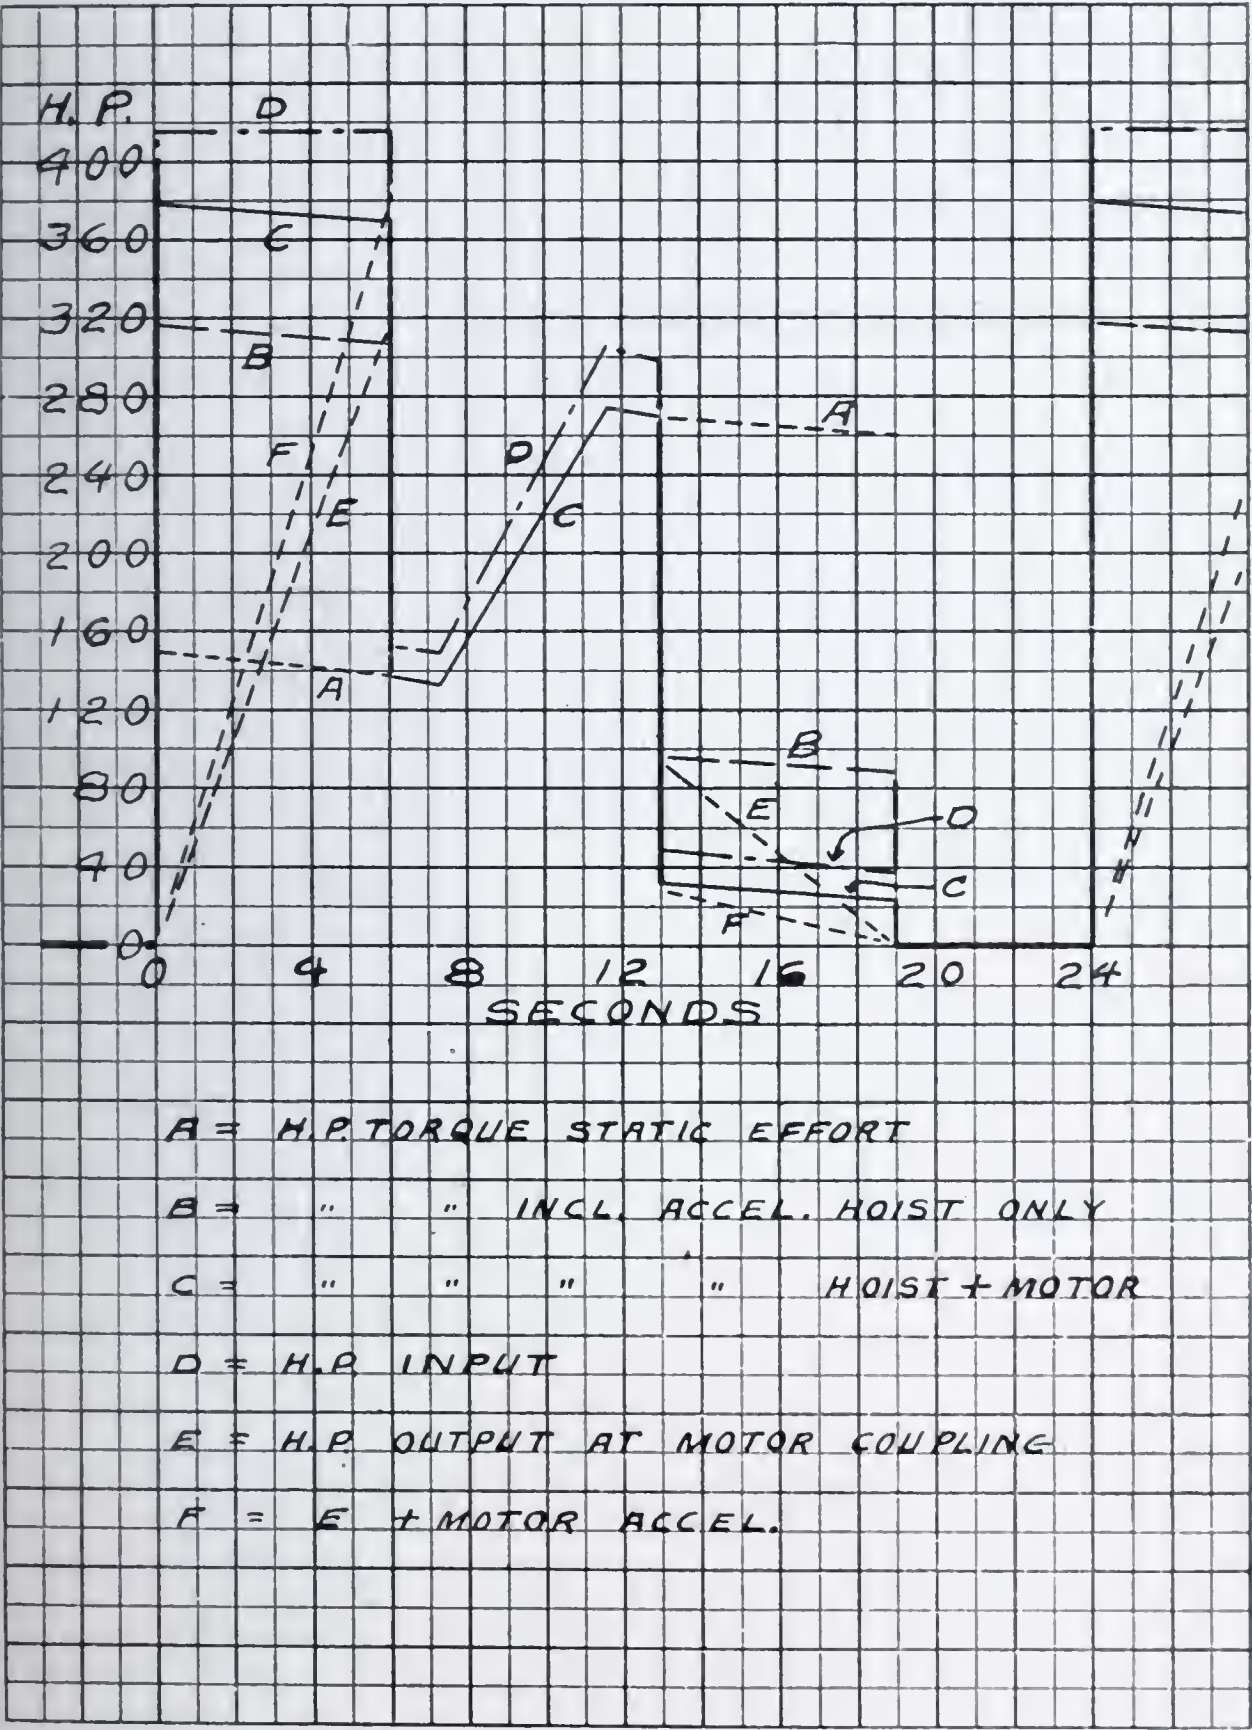 H. P.
D
400
C
360
320
B
280
A
F
D
240
E
C
200
160
A
120
B
80
E
D
40
C
F
0
0 4 8 12 16 20 24
SECONDS
A = H.P. TORQUE STATIC EFFORT
B = " " INCL. ACCEL. HOIST ONLY
C = " " " " HOIST + MOTOR
D = H.P. INPUT
E = H.P. OUTPUT AT MOTOR COUPLING
F = E + MOTOR ACCEL.